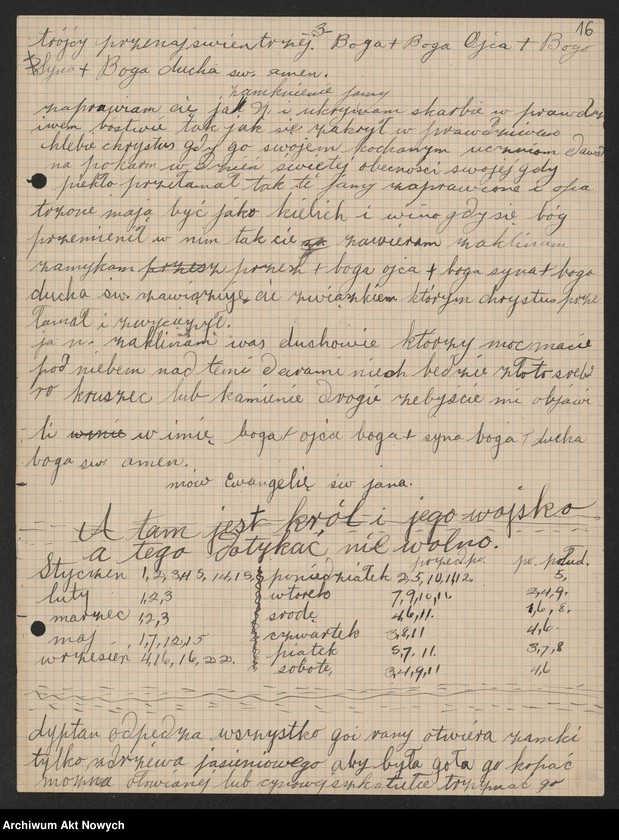 16
-3-
trójcy przenajswientrzej. Boga + Boga Ojca + Boga
Syna + Boga ducha sw. amen.
zamkniencie jamy
zaprawiam cię jak i ukrywam skarbie w prawdz
iwem bóstwie tak jak się zakrył w prawdziwem
chlebie chrystus gdy go swojem kochanym uczniom dawał
na pokarm w świętej obecności swojej gdy
piekło przełamał tak te jamy zaprawione i ofia
trzone mają być jako kielich i wino gdy się bóg
przemienił w nim tak cie zawieram zaklinam
zamykam przesz przesz + boga ojca + boga syna + boga
ducha sw. zawiązuje cie związkiem którym chrystus prze
łamał i zwyciężył.
ja n. zaklinam was duchowie którzy moc macie
pod niebem nad temi darami niech bedzie złoto sreb
ro kruszec lub kamienie drogie zebyście mi objawi
li w imię boga + ojca boga + syna boga + ducha
boga sw. amen.
mów Ewangelię św jana.
A tam jest król i jego wojsko
a tego dotykać nie wolno.
przedpo. po. połud.
Styczeń 1,2,3,4,5, poniedziałek 2,5,10,11,12. 5,
luty 1,2,3 wtorek 7,9,10,16 2,4,9.
marzec 1,2,3 srodę 4,6,11. 1,6,8.
maj 1,7,12,15 czwartek 3,8,11 4,6.
wrzesień 4,16,16,22. piatek 5,7.11. 3,7,8
sobotę, 3,4,9,11 4,6
dyptan odpedza wszystko goi rany otwiéra zamki
tylko zdrzéwa jasieniowego aby była goła go kopać
mozna ołowianej lub cynowej szkatułce trzymać go
Archiwum Akt Nowych